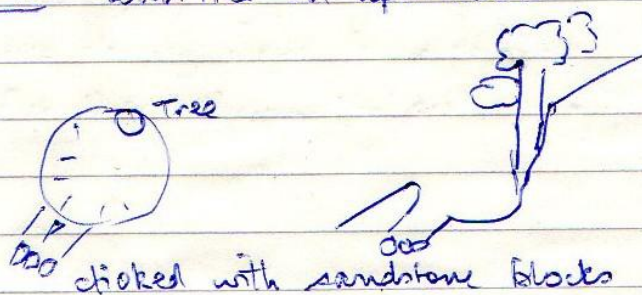 Tree
choked with sandstone blocks